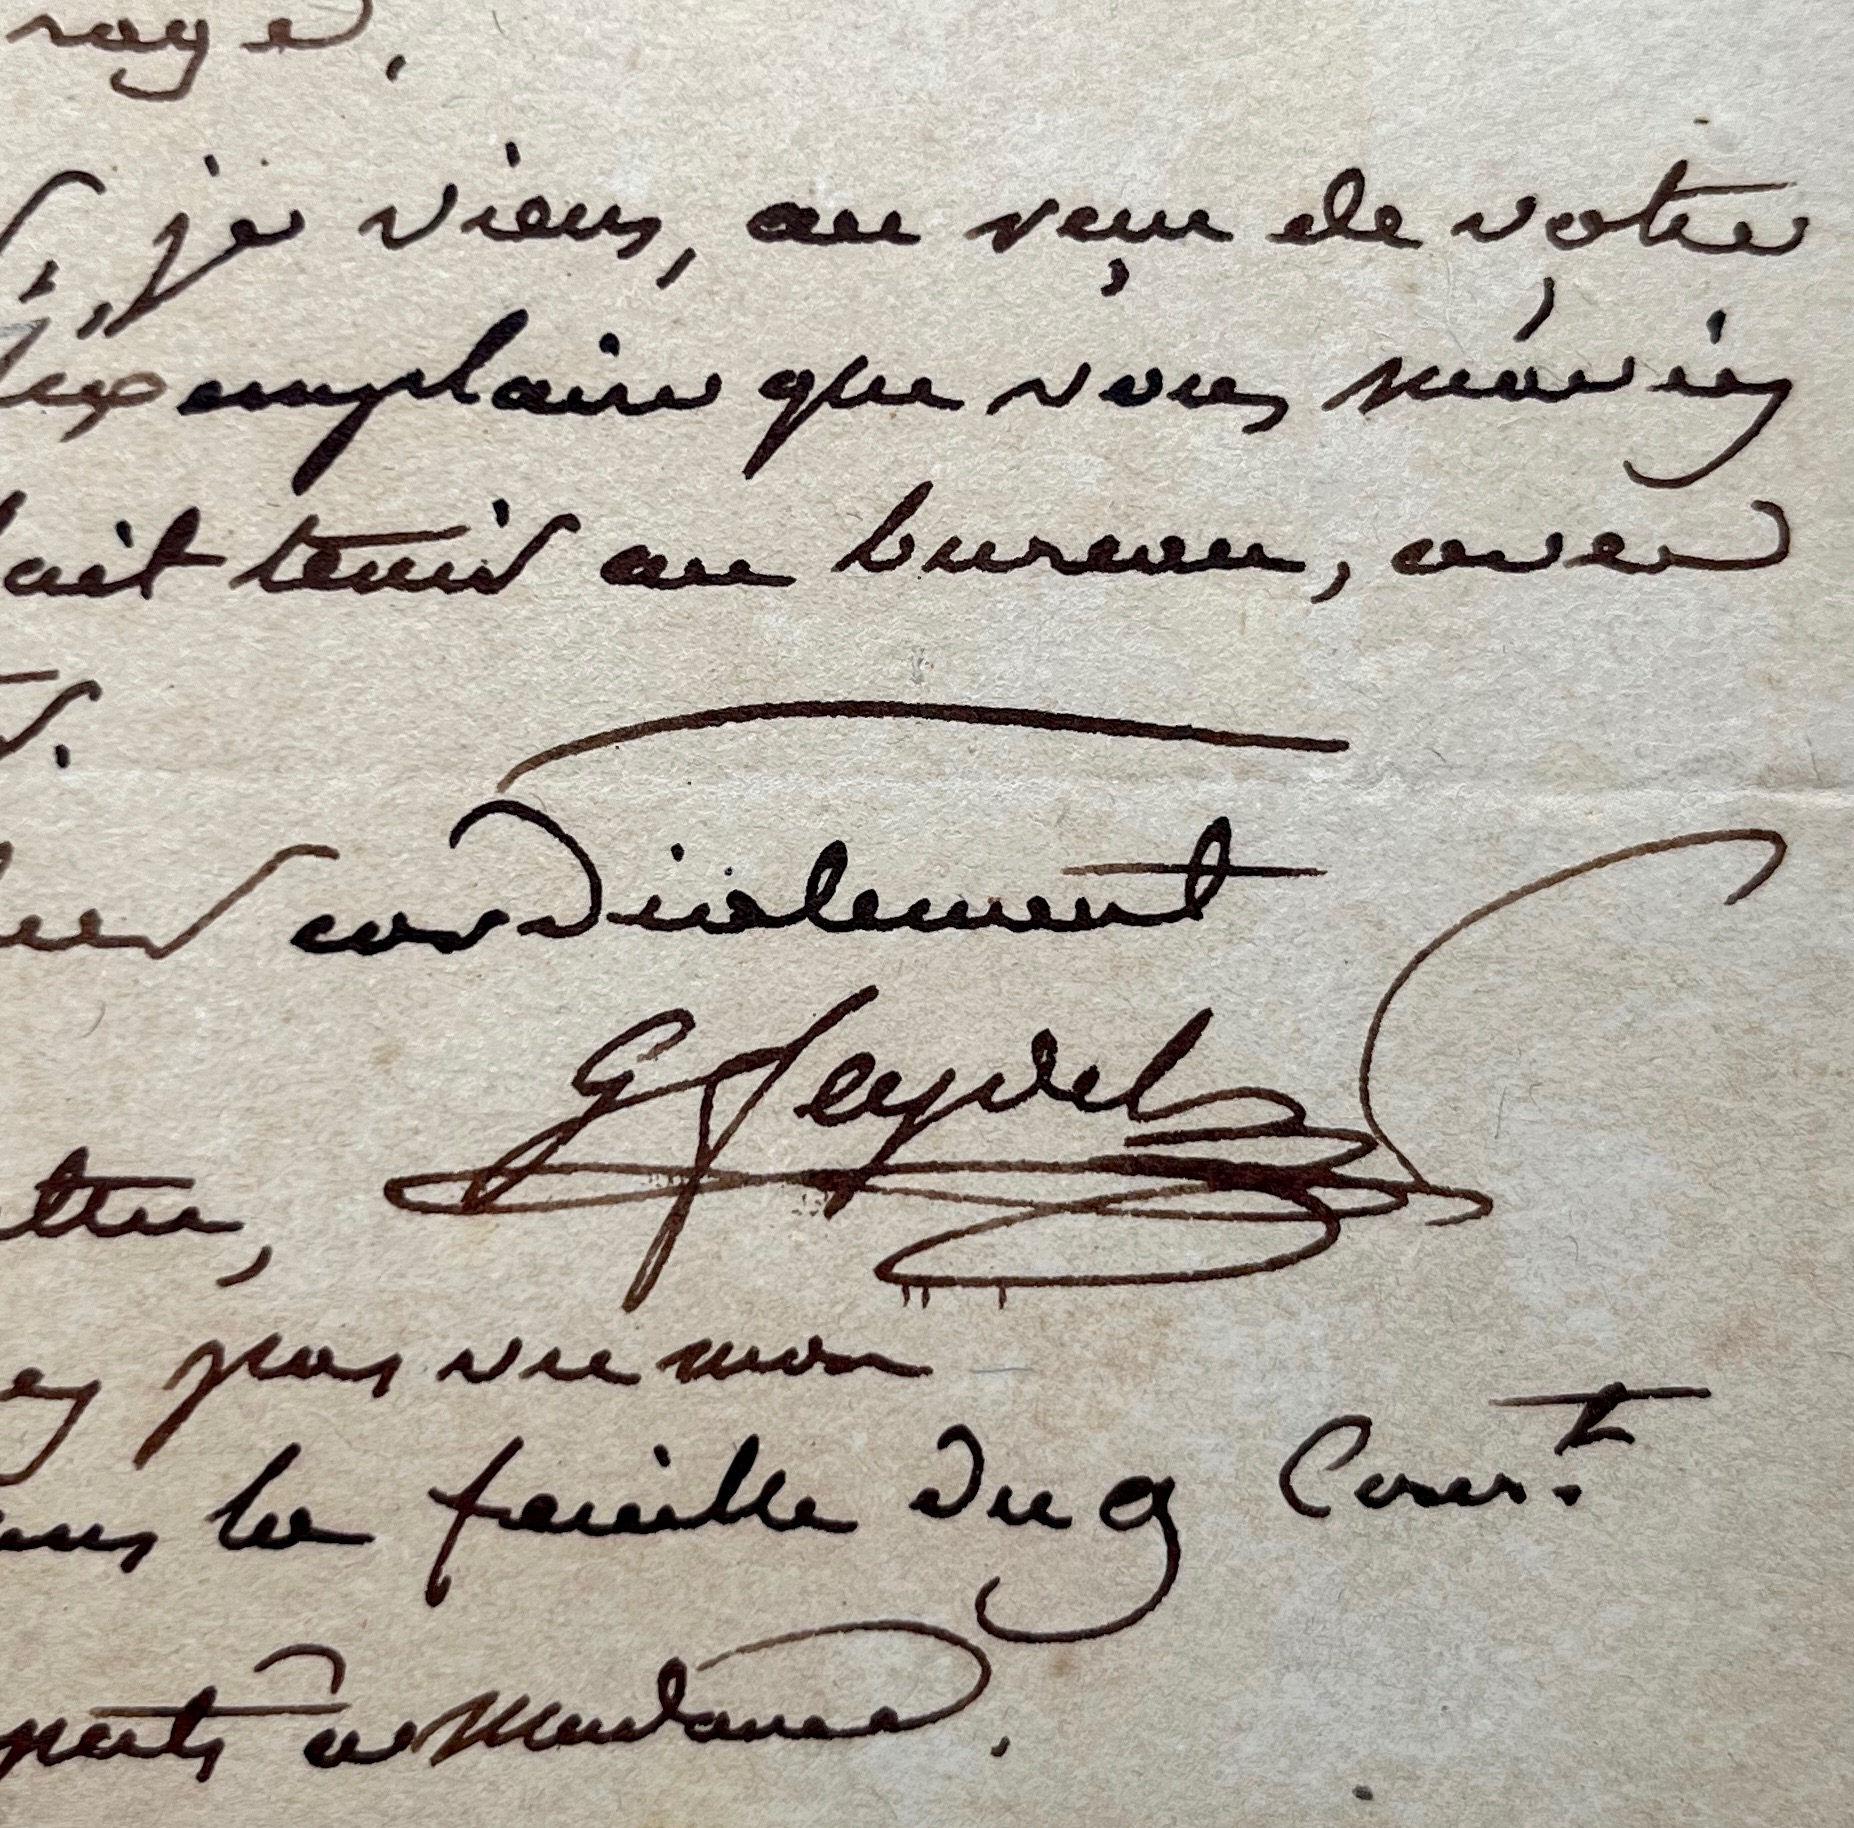 rage.
je viens, au reçu de votre
exemplaire que vous m'aviez
fait tenir au bureau, avec
cordialement
G Seydel
ettre,
ez pas vu mon
dans la feuille du 9 Cour.t
pects à Madame.